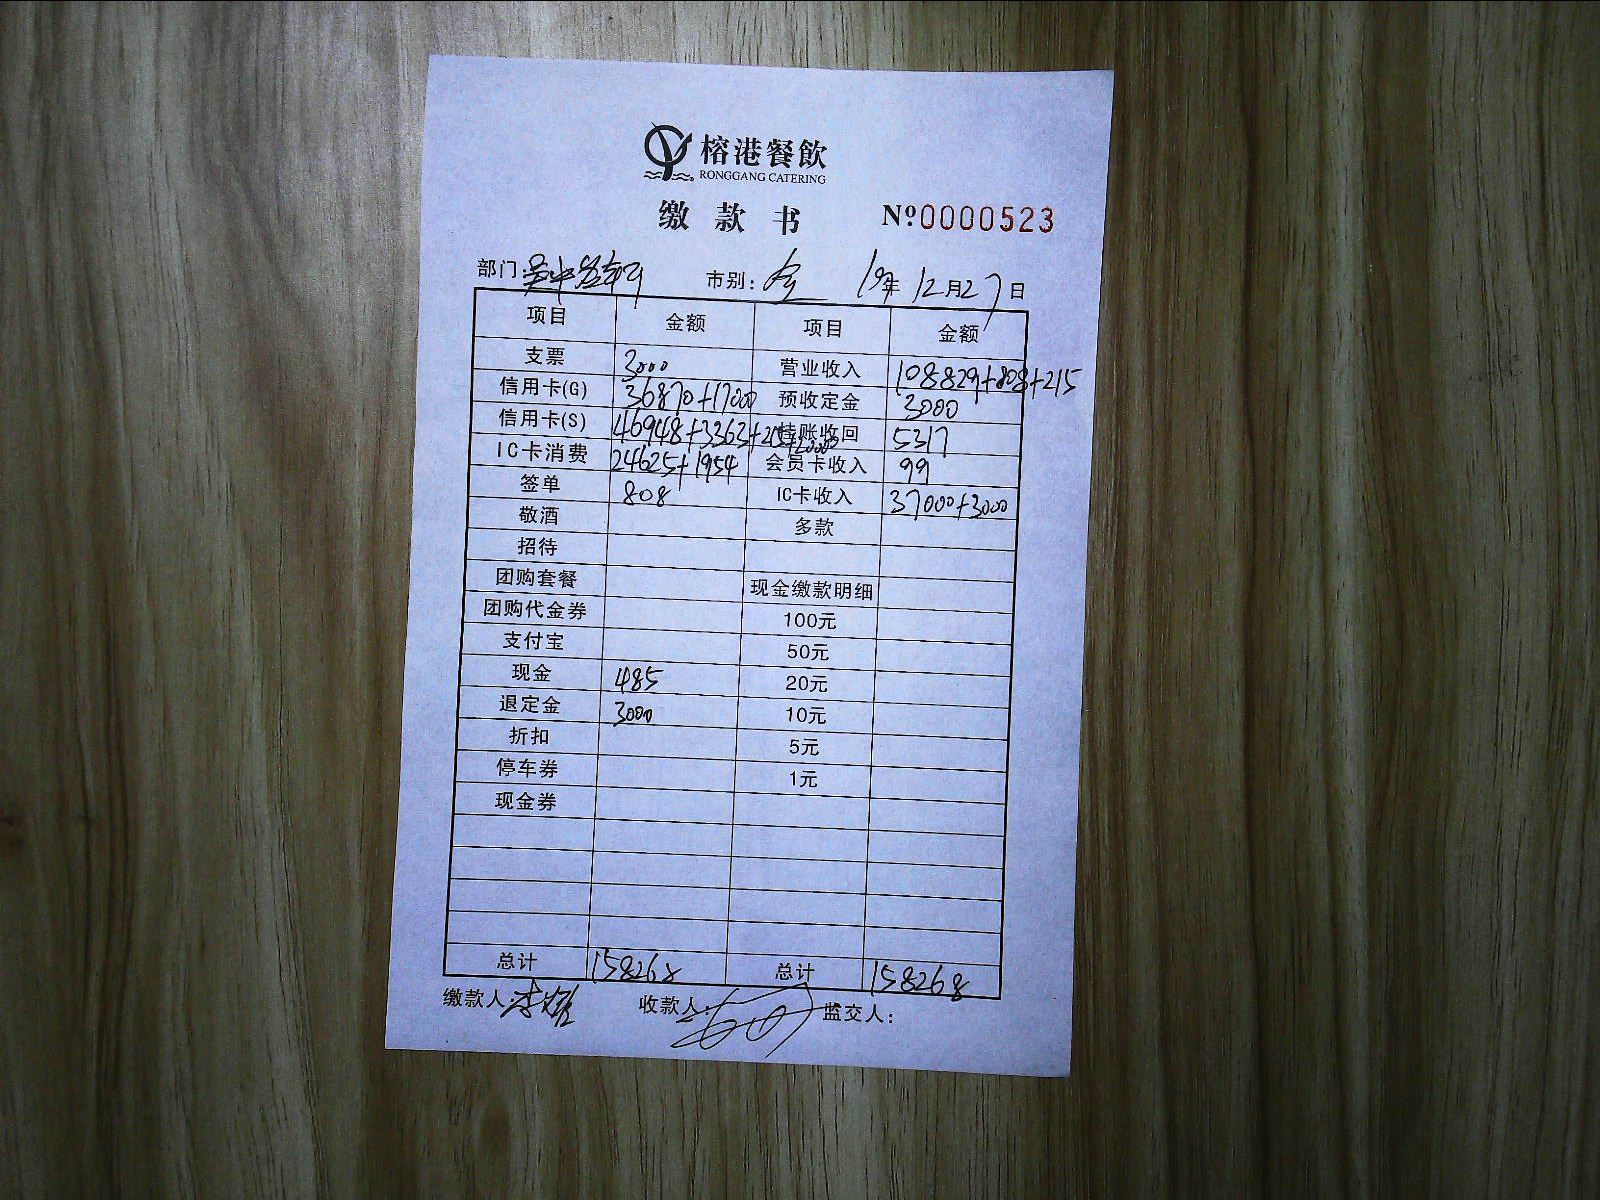 榕港餐飲
RONGGANG CATERING
缴款书 Nº0000523
部门: 市别: 全 19年12月27日
项目 金额 项目 金额
支票 3000 营业收入 108829+808+215
信用卡(G) 36870+17000 预收定金 3000
信用卡(S) 46948+3363+215+20000 挂账收回 5317
IC卡消费 24625+1954 会员卡收入 99
签单 808 IC卡收入 37000+3000
敬酒 多款
招待
团购套餐 现金缴款明细
团购代金券 100元
支付宝 50元
现金 485 20元
退定金 3000 10元
折扣 5元
停车券 1元
现金券
总计 158268 总计 158268
缴款人: 收款人: 监交人: